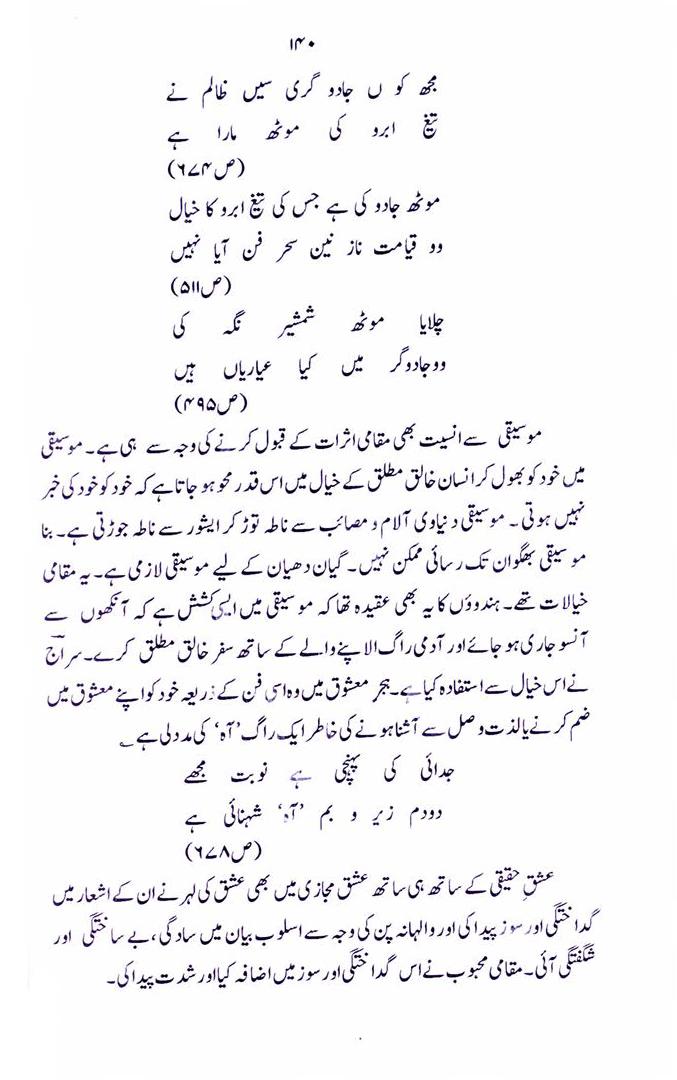 ۱۴۰
مجھ کو ں جادو گری سیں ظالم نے
تیغ ابرو کی موٹھ مارا ہے
(ص۶۷۴)
موٹھ جادو کی ہے جس کی تیغ ابرو کا خیال
وو قیامت ناز نین سحر فن آیا نہیں
(ص۵۱۱)
چلایا موٹھ شمشیر نگہ کی
ووجادوگر میں کیا عیاریاں ہیں
(ص۴۹۵)
موسیقی سے انسیت بھی مقامی اثرات کے قبول کرنے کی وجہ سے ہی ہے۔ موسیقی
میں خود کو بھول کر انسان خالق مطلق کے خیال میں اس قدر محو ہو جاتا ہے کہ خود کو خود کی خبر
نہیں ہوتی۔ موسیقی دنیاوی آلام و مصائب سے ناطہ توڑ کر ایشور سے ناطہ جوڑتی ہے۔ بنا
موسیقی بھگوان تک رسائی ممکن نہیں۔ گیان دھیان کے لیے موسیقی لازمی ہے۔ یہ مقامی
خیالات تھے۔ ہندوؤں کا یہ بھی عقیدہ تھا کہ موسیقی میں ایسی کشش ہے کہ آنکھوں سے
آنسو جاری ہو جائے اور آدمی راگ الاپنے والے کے ساتھ سفر خالق مطلق کرے۔ سراجؔ
نے اس خیال سے استفادہ کیا ہے۔ ہجرِ معشوق میں وہ اسی فن کے ذریعہ خود کو اپنے معشوق میں
ضم کرنے یا لذت وصل سے آشنا ہونے کی خاطر ایک راگ ’آہ‘ کی مدد لی ہے؂
جدائی کی پہنچی ہے نوبت مجھے
دودم زیر و بم ’آہ‘ شہنائی ہے
(ص۶۷۸)
عشقِ حقیقی کے ساتھ ہی ساتھ عشق مجازی میں بھی عشق کی لہر نے ان کے اشعار میں
گداختگی اور سوز پیدا کی اور والہانہ پن کی وجہ سے اسلوب بیان میں سادگی، بے ساختگی اور
شگفتگی آئی۔ مقامی محبوب نے اس گداختگی اور سوز میں اضافہ کیا اور شدت پیدا کی۔